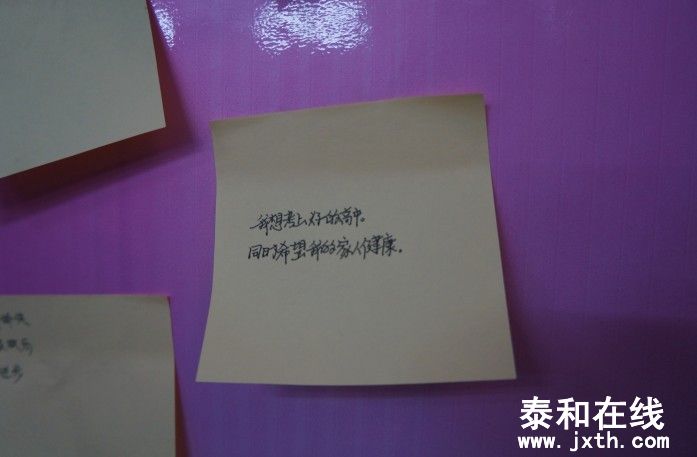 我想考上好的高中。
同时希望我的家人健康。
泰和在线
www.jxth.com